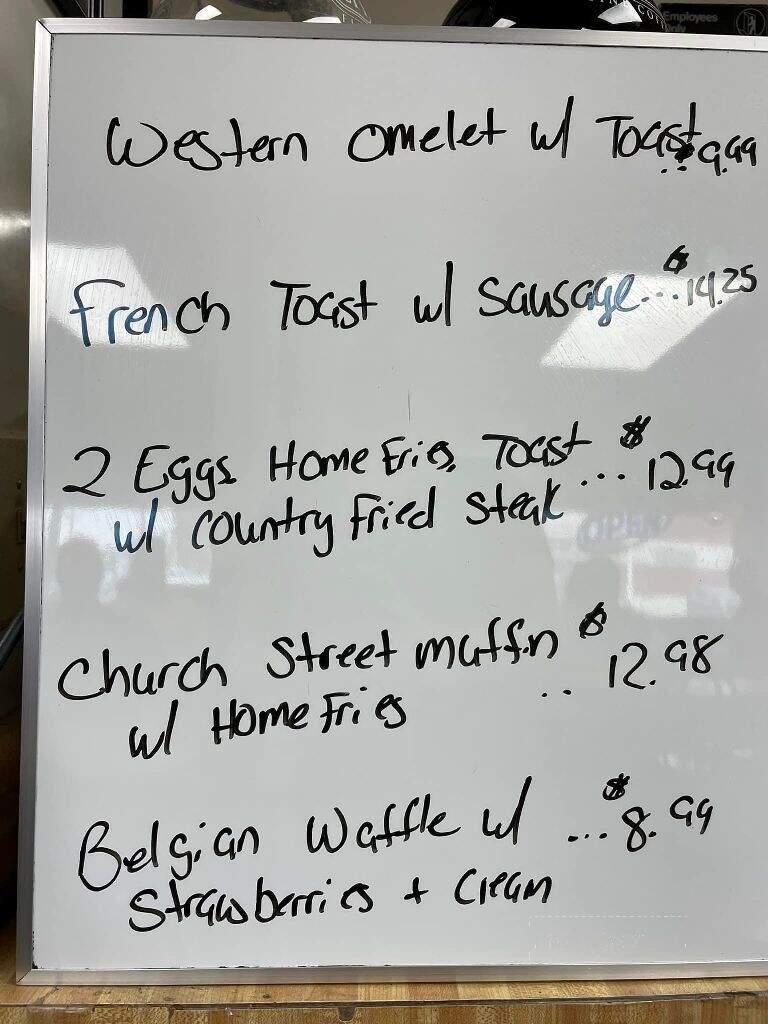 Employees
Only
Western Omelet w/ Toast..$9.99
French Toast w/ Sausage...$14.25
2 Eggs Home Fries Toast
w/ Country Fried Steak ... $12.99
Church Street muffin .. $12.98
w/ Home Fries
Belgian Waffle w/ ... $8.99
Strawberries + Cream
OPEN